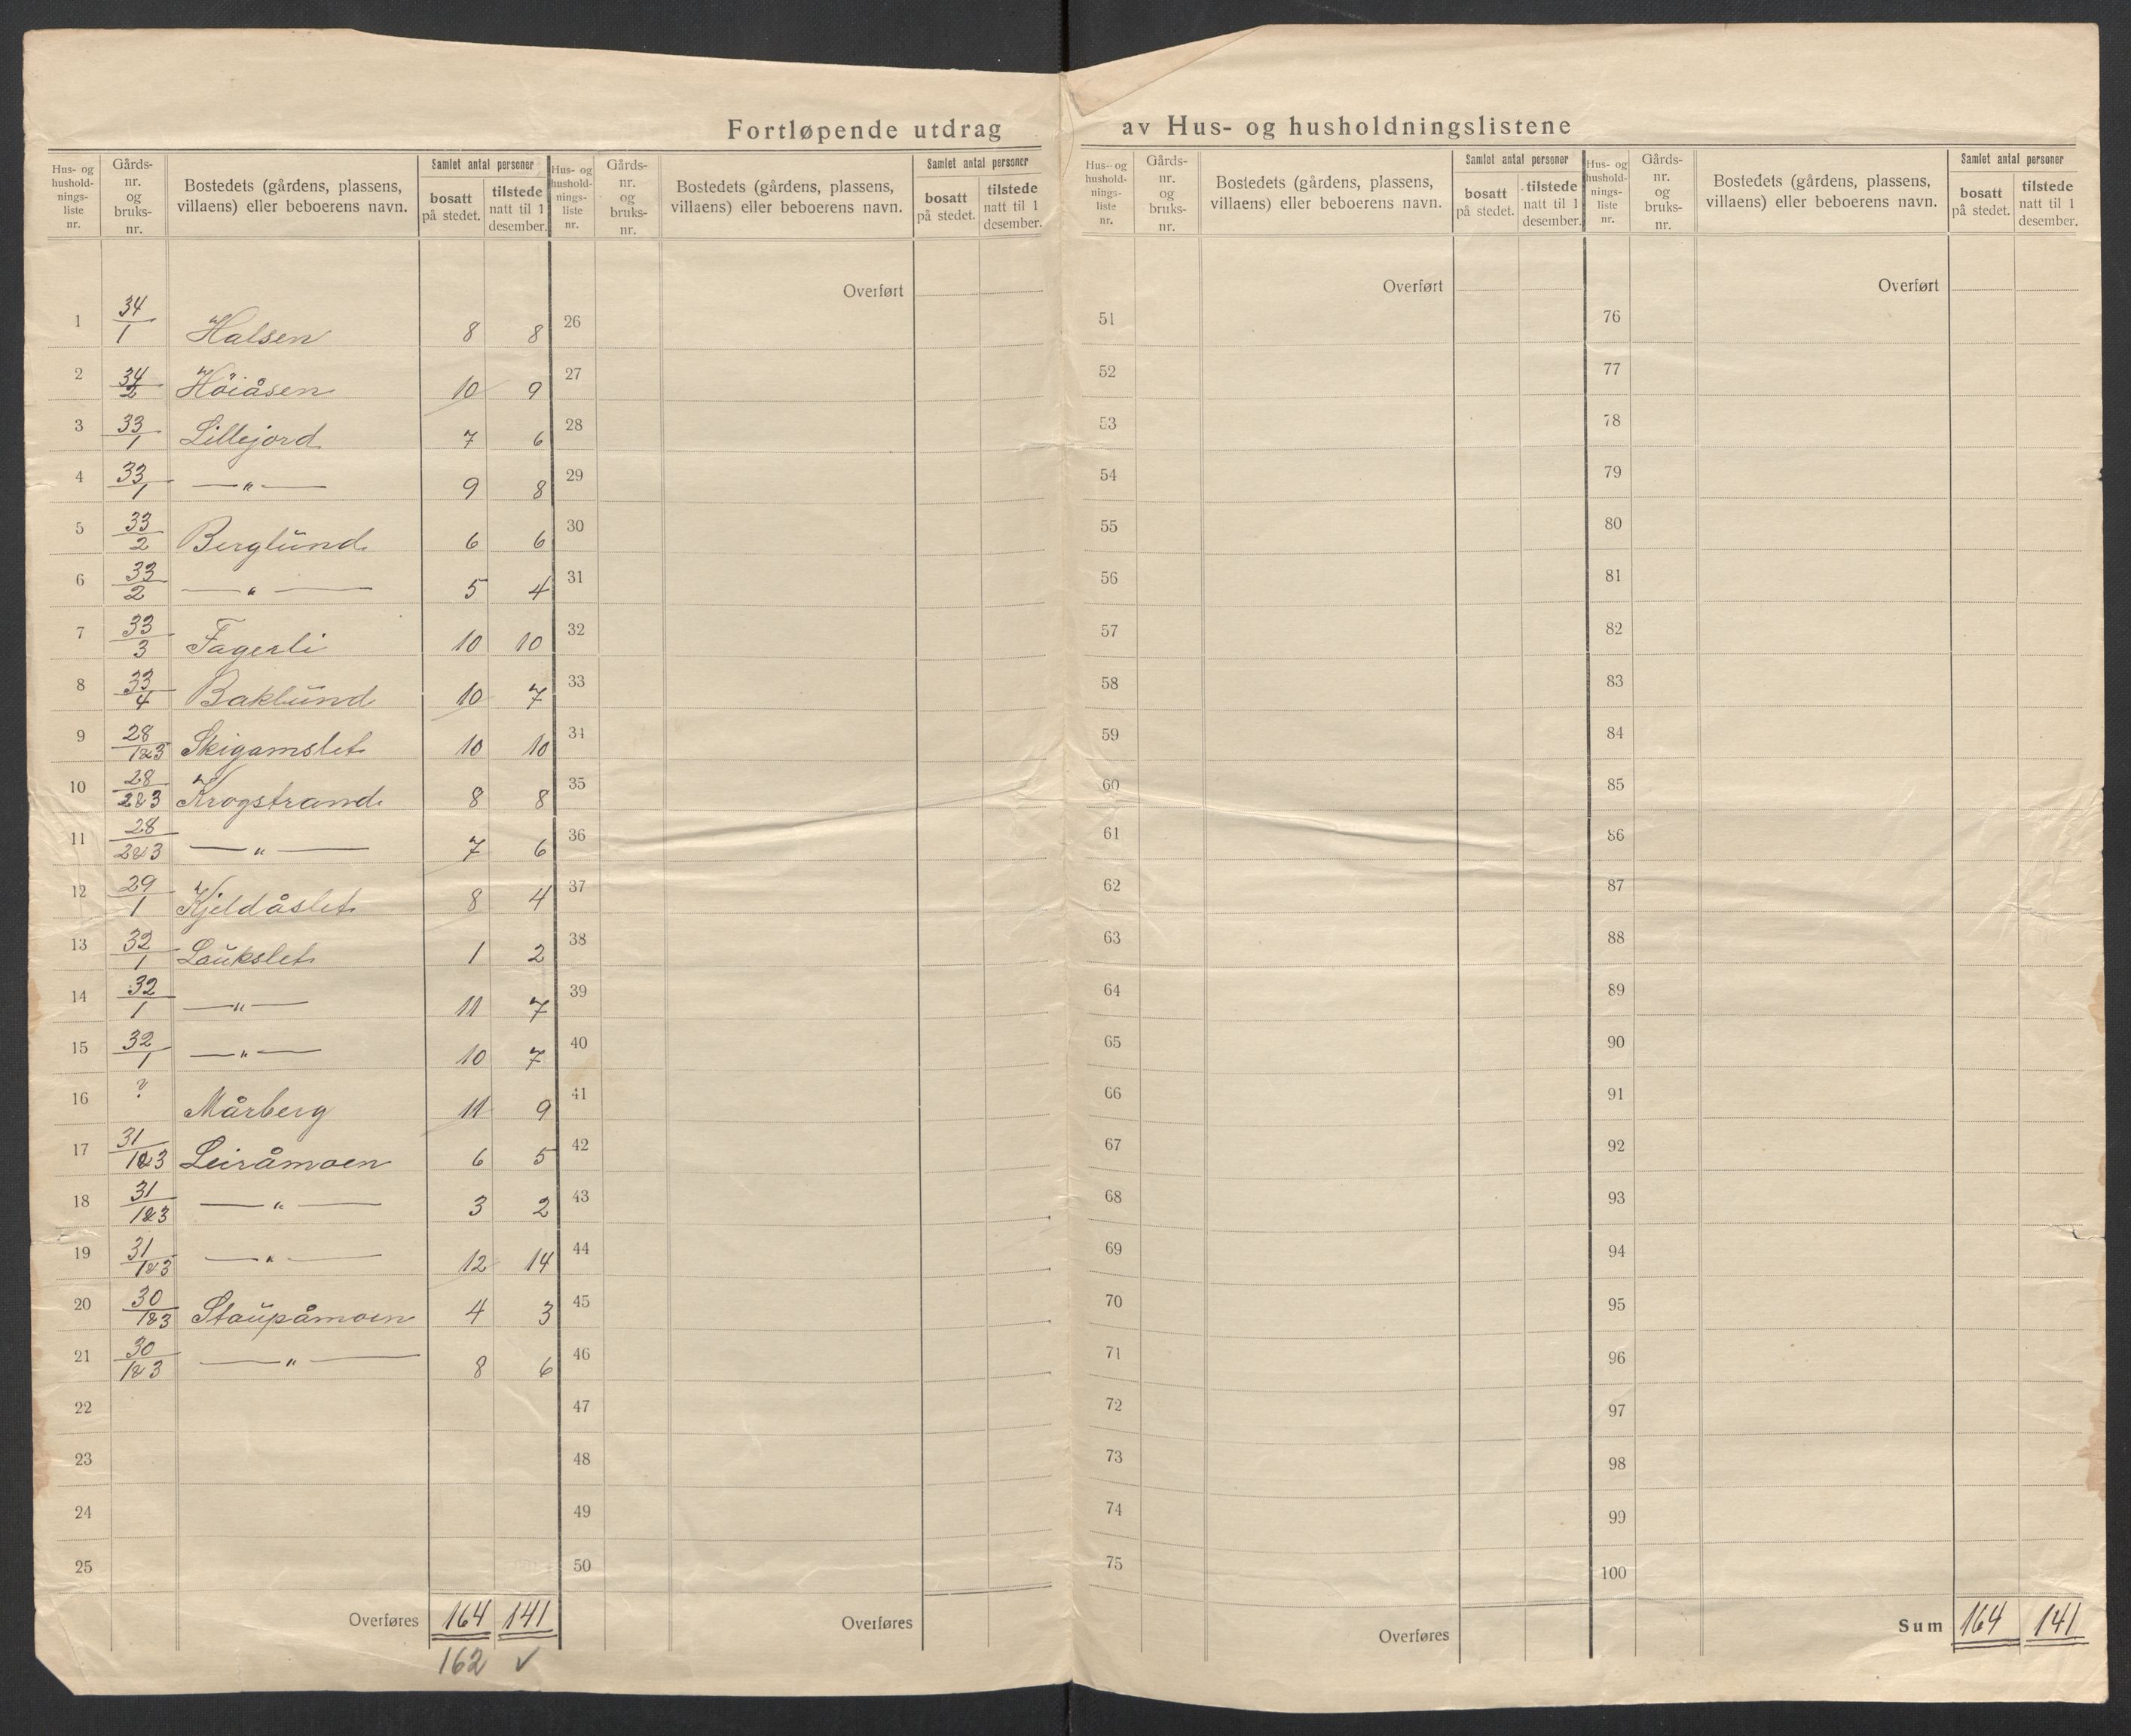 Fortløpende utdrag av Hus- og husholdningslistene
Hus- og hushold-nings-liste nr. | Gårds-nr. og bruks-nr. | Bostedets (gårdens, plassens, villaens) eller beboerens navn. | Samlet antal personer | bosatt på stedet. | tilstede natt til 1 desember.
Hus- og hushold-nings-liste nr. | Gårds-nr. og bruks-nr. | Bostedets (gårdens, plassens, villaens) eller beboerens navn. | Samlet antal personer | bosatt på stedet. | tilstede natt til 1 desember.
Hus- og hushold-nings-liste nr. | Gårds-nr. og bruks-nr. | Bostedets (gårdens, plassens, villaens) eller beboerens navn. | Samlet antal personer | bosatt på stedet. | tilstede natt til 1 desember.
Hus- og hushold-nings-liste nr. | Gårds-nr. og bruks-nr. | Bostedets (gårdens, plassens, villaens) eller beboerens navn. | Samlet antal personer | bosatt på stedet. | tilstede natt til 1 desember.
1 34/1 Halsen 8 8
2 34/2 Höiåsen 10 9
3 33/1 Lillejord 7 6
4 33/1 —"— 9 8
5 33/2 Berglund 6 6
6 33/2 —"— 5 4
7 33/3 Fagerli 10 10
8 33/4 Baklund 10 7
9 28/1&3 Skigamslet 10 10
10 28/2&3 Krogstrand 8 8
11 28/2&3 —"— 7 6
12 29/1 Kjeldåslet 8 4
13 32/1 Laukslet 1 2
14 32/1 —"— 11 7
15 32/1 —"— 10 7
16 ? Mårberg 11 9
17 31/1&3 Leiråmoen 6 5
18 31/1&3 —"— 3 2
19 31/1&3 —"— 12 14
20 30/1&3 Staupåmoen 4 3
21 30/1&3 —"— 8 6
22
23
24
25
Overføres 164 141
162 ✓
Overført
26
27
28
29
30
31
32
33
34
35
36
37
38
39
40
41
42
43
44
45
46
47
48
49
50
Overføres
Overført
51
52
53
54
55
56
57
58
59
60
61
62
63
64
65
66
67
68
69
70
71
72
73
74
75
Overføres
Overført
76
77
78
79
80
81
82
83
84
85
86
87
88
89
90
91
92
93
94
95
96
97
98
99
100
Sum 164 141